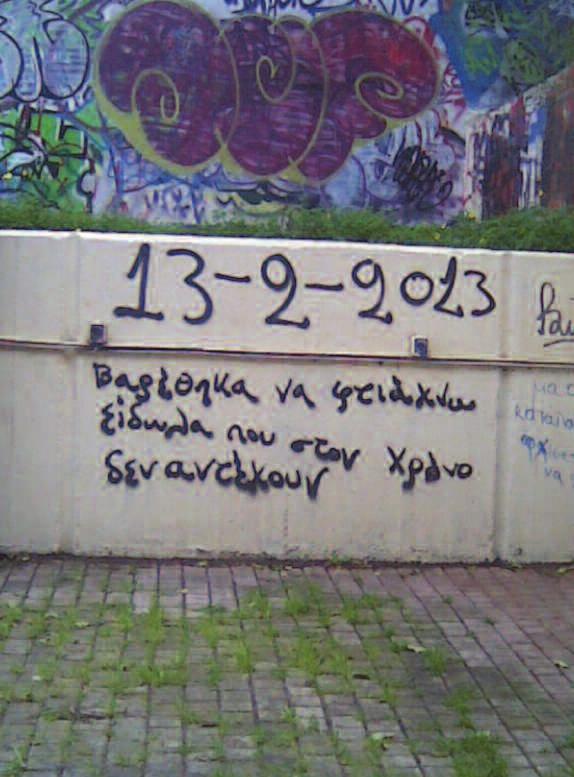 13-2-2013
Βαρέθηκα να φτιάχνω
είδωλα που στον χρόνο
δεν αντέχουν